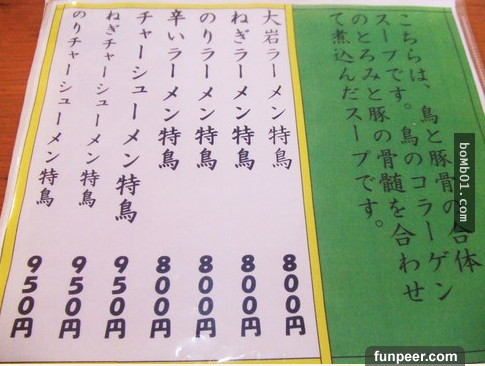 こちらは、鳥と豚骨の合体
スープです。鳥のコラーゲン
のとろみと豚の骨髄を合わせ
て煮込んだスープです。
大岩ラーメン特鳥 800円
ねぎラーメン特鳥 800円
のりラーメン特鳥 800円
辛いラーメン特鳥 800円
チャーシューメン特鳥 950円
ねぎチャーシューメン特鳥 950円
のりチャーシューメン特鳥 950円
bomb01.com
funpeer.com